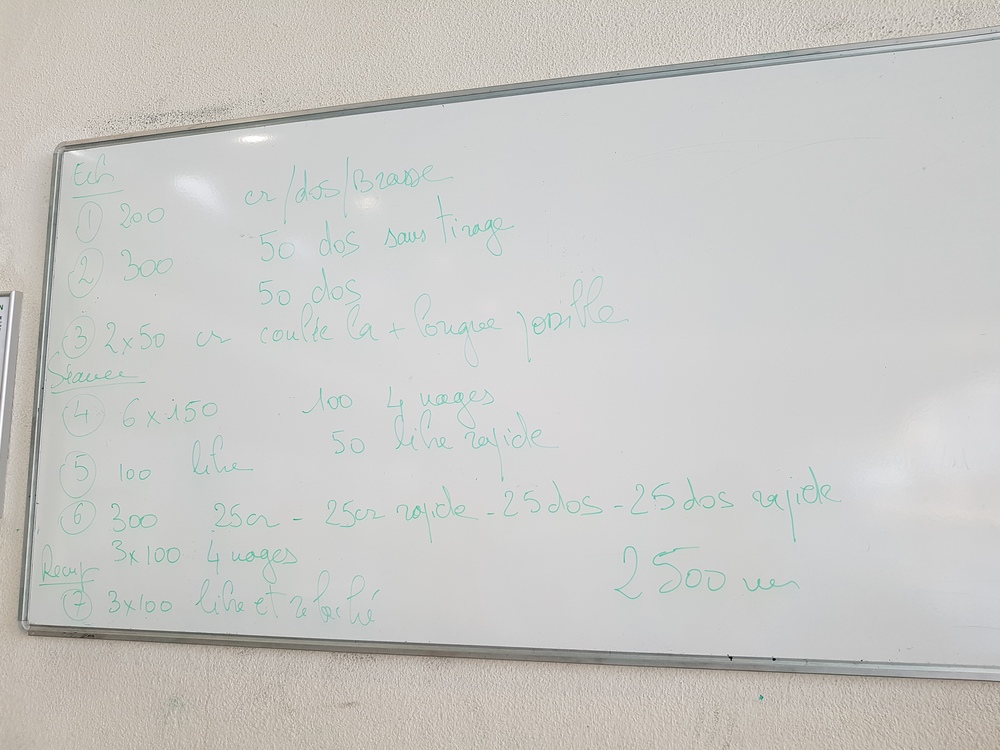 Ech
① 200 cr/dos/Brasse
② 300 50 dos sans tirage
50 dos
③ 2x50 cr coulée la + longue possible
Séance
④ 6x150 100 4 nages
50 libre rapide
⑤ 100 libre
⑥ 300 25cr - 25cr rapide - 25 dos - 25 dos rapide
3x100 4 nages
2500 m
Recup
⑦ 3x100 libre et relaché